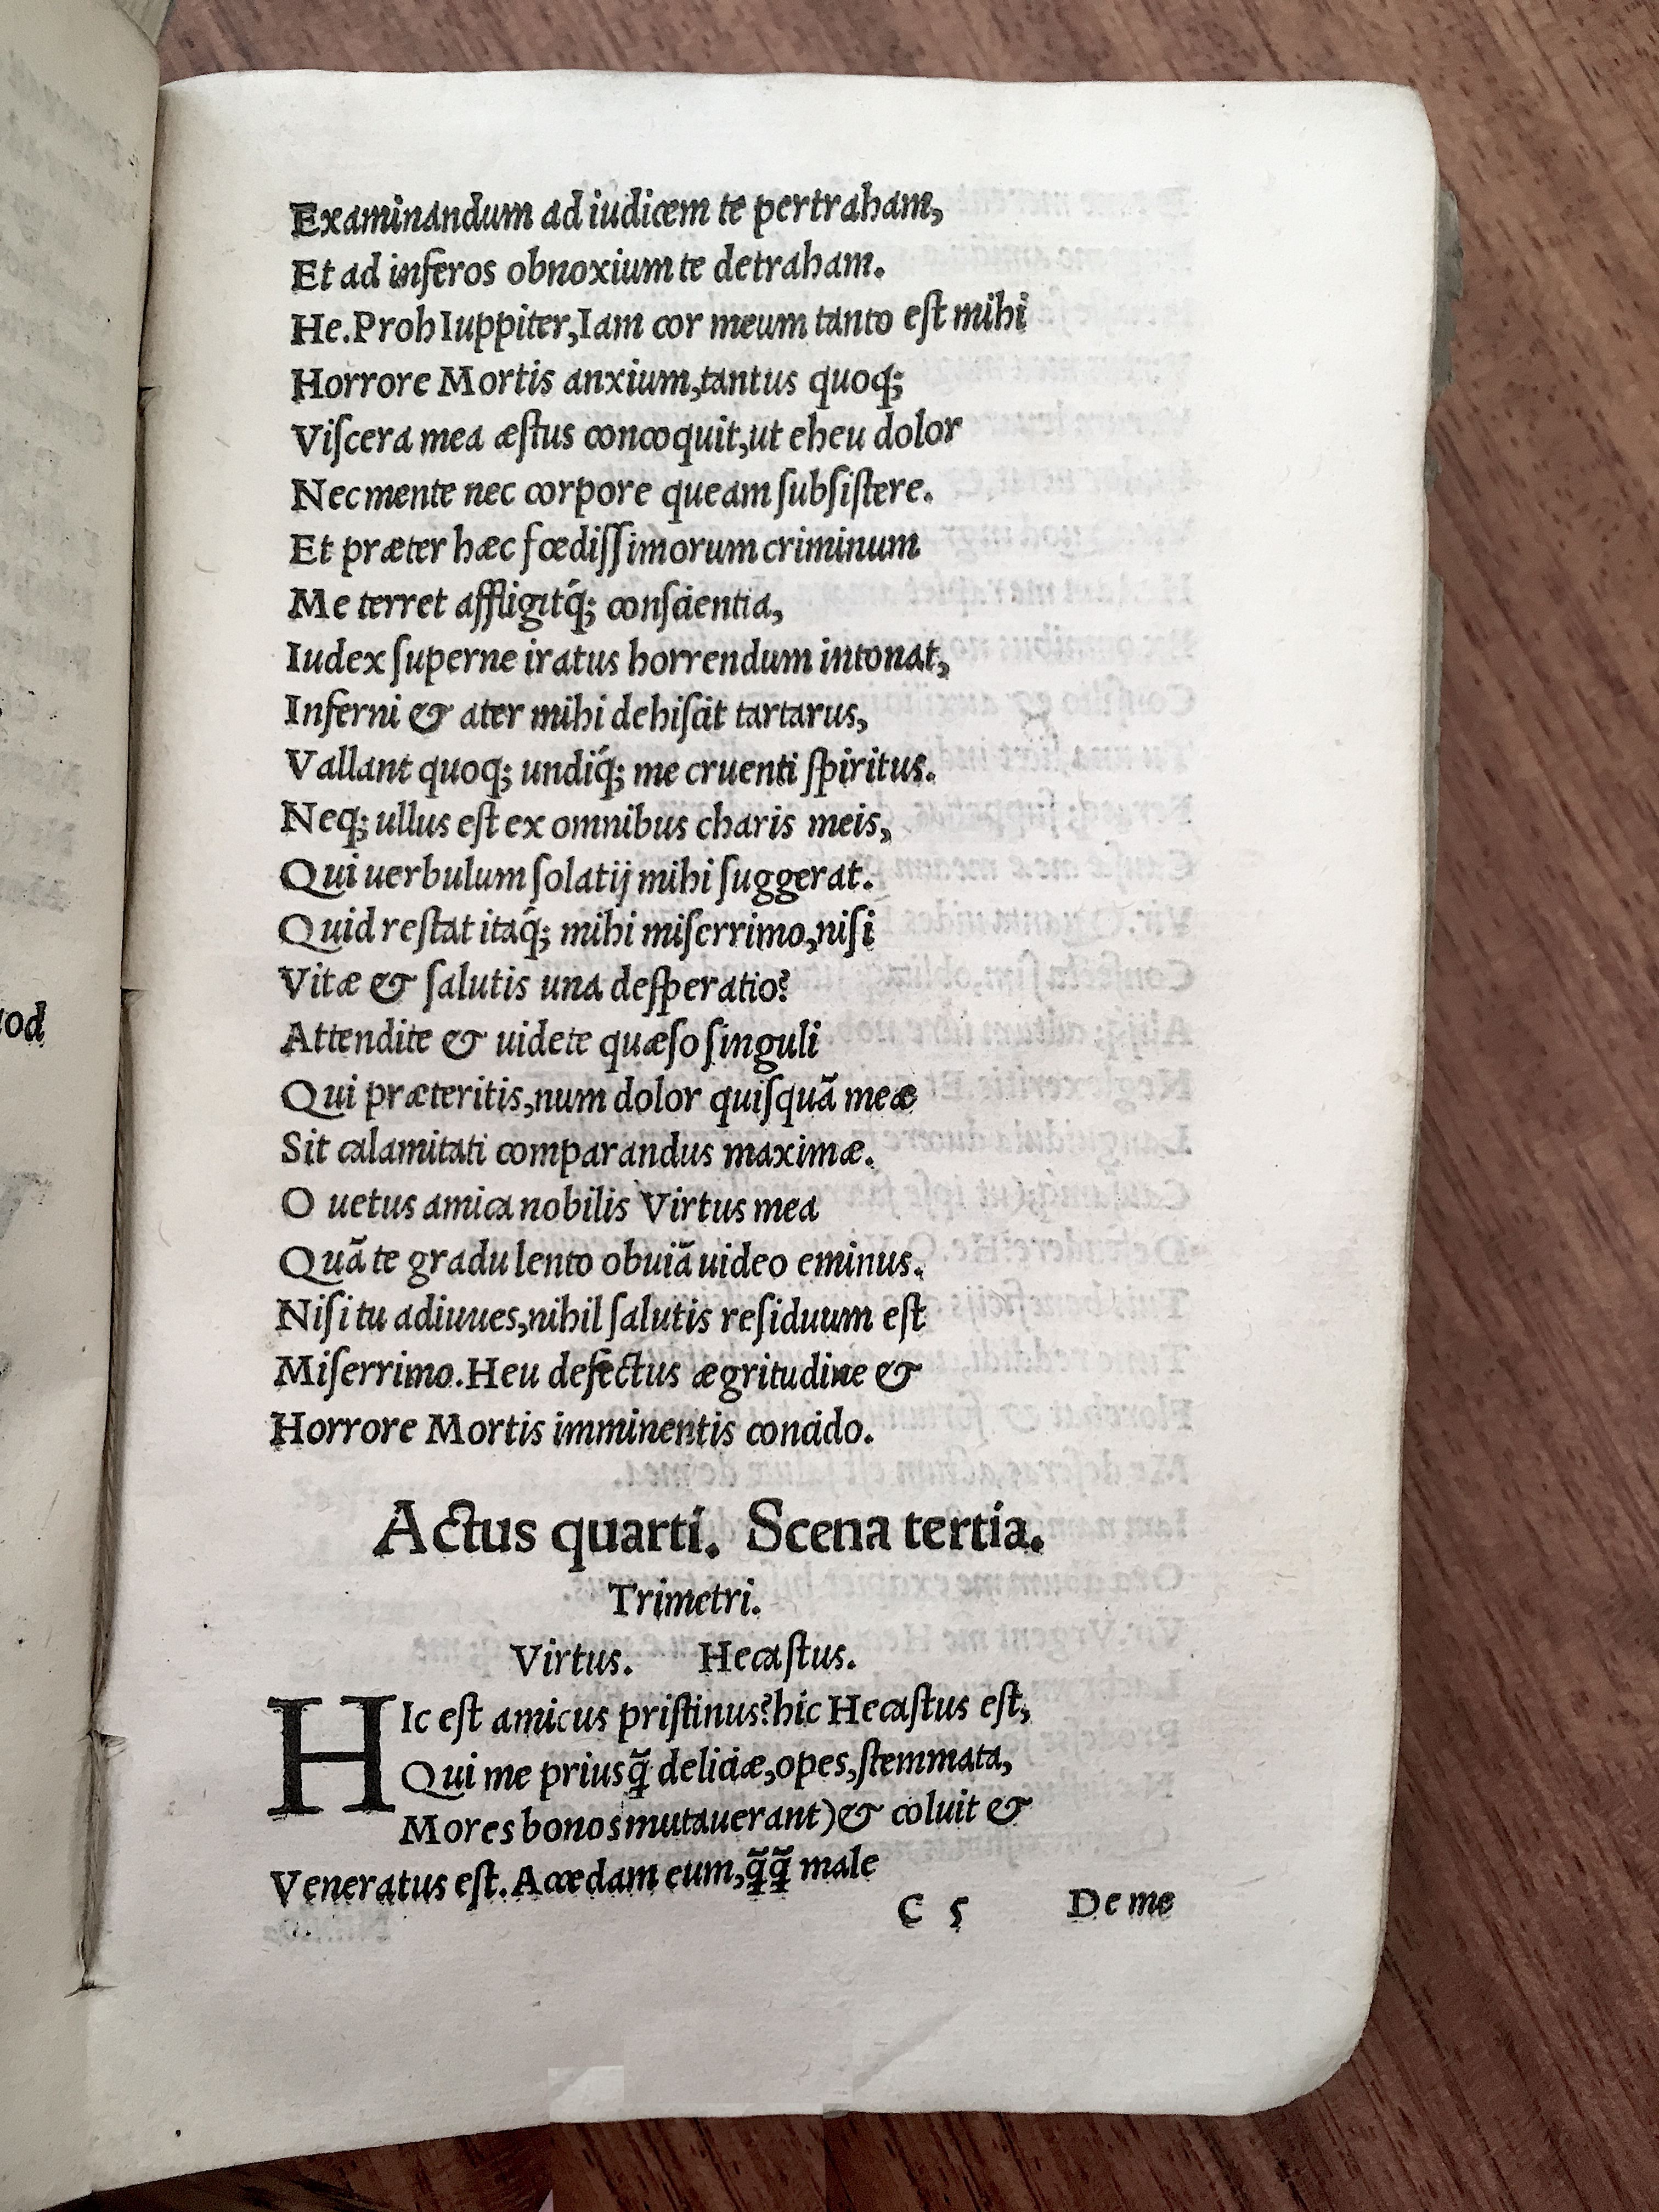 Examinandum ad iudicem te pertraham,
Et ad inferos obnoxium te detraham.
He. Proh Iuppiter, Iam cor meum tanto eſt mihi
Horrore Mortis anxium, tantus quoq;
Viſcera mea æſtus concoquit, ut eheu dolor
Nec mente nec corpore queam ſubſiſtere.
Et præter hæc fœdiſſimorum criminum
Me terret affligitq́; conſcientia,
Iudex ſuperne iratus horrendum intonat,
Inferni & ater mihi dehiſcit tartarus,
Vallant quoq; undiq́; me cruenti ſpiritus.
Neq; ullus eſt ex omnibus charis meis,
Qui uerbulum ſolatij mihi ſuggerat.
Quid reſtat itaq́; mihi miſerrimo, niſi
Vitæ & ſalutis una deſperatio?
Attendite & uidete quæſo ſinguli
Qui præteritis, num dolor quiſquã meæ
Sit calamitati comparandus maximæ.
O uetus amica nobilis Virtus mea
Quã te gradu lento obuiã uideo eminus.
Niſi tu adiuues, nihil ſalutis reſiduum eſt
Miſerrimo. Heu defectus ægritudine &
Horrore Mortis imminentis concido.
Actus quarti. Scena tertia.
Trimetri.
Virtus. Hecaſtus.
HIc eſt amicus priſtinus? hic Hecaſtus eſt,
Qui me priusq̃ deliciæ, opes, ſtemmata,
Mores bonos mutauerant) & coluit &
Veneratus eſt. Accedam eum, q̃q̃ male
C 5 De me